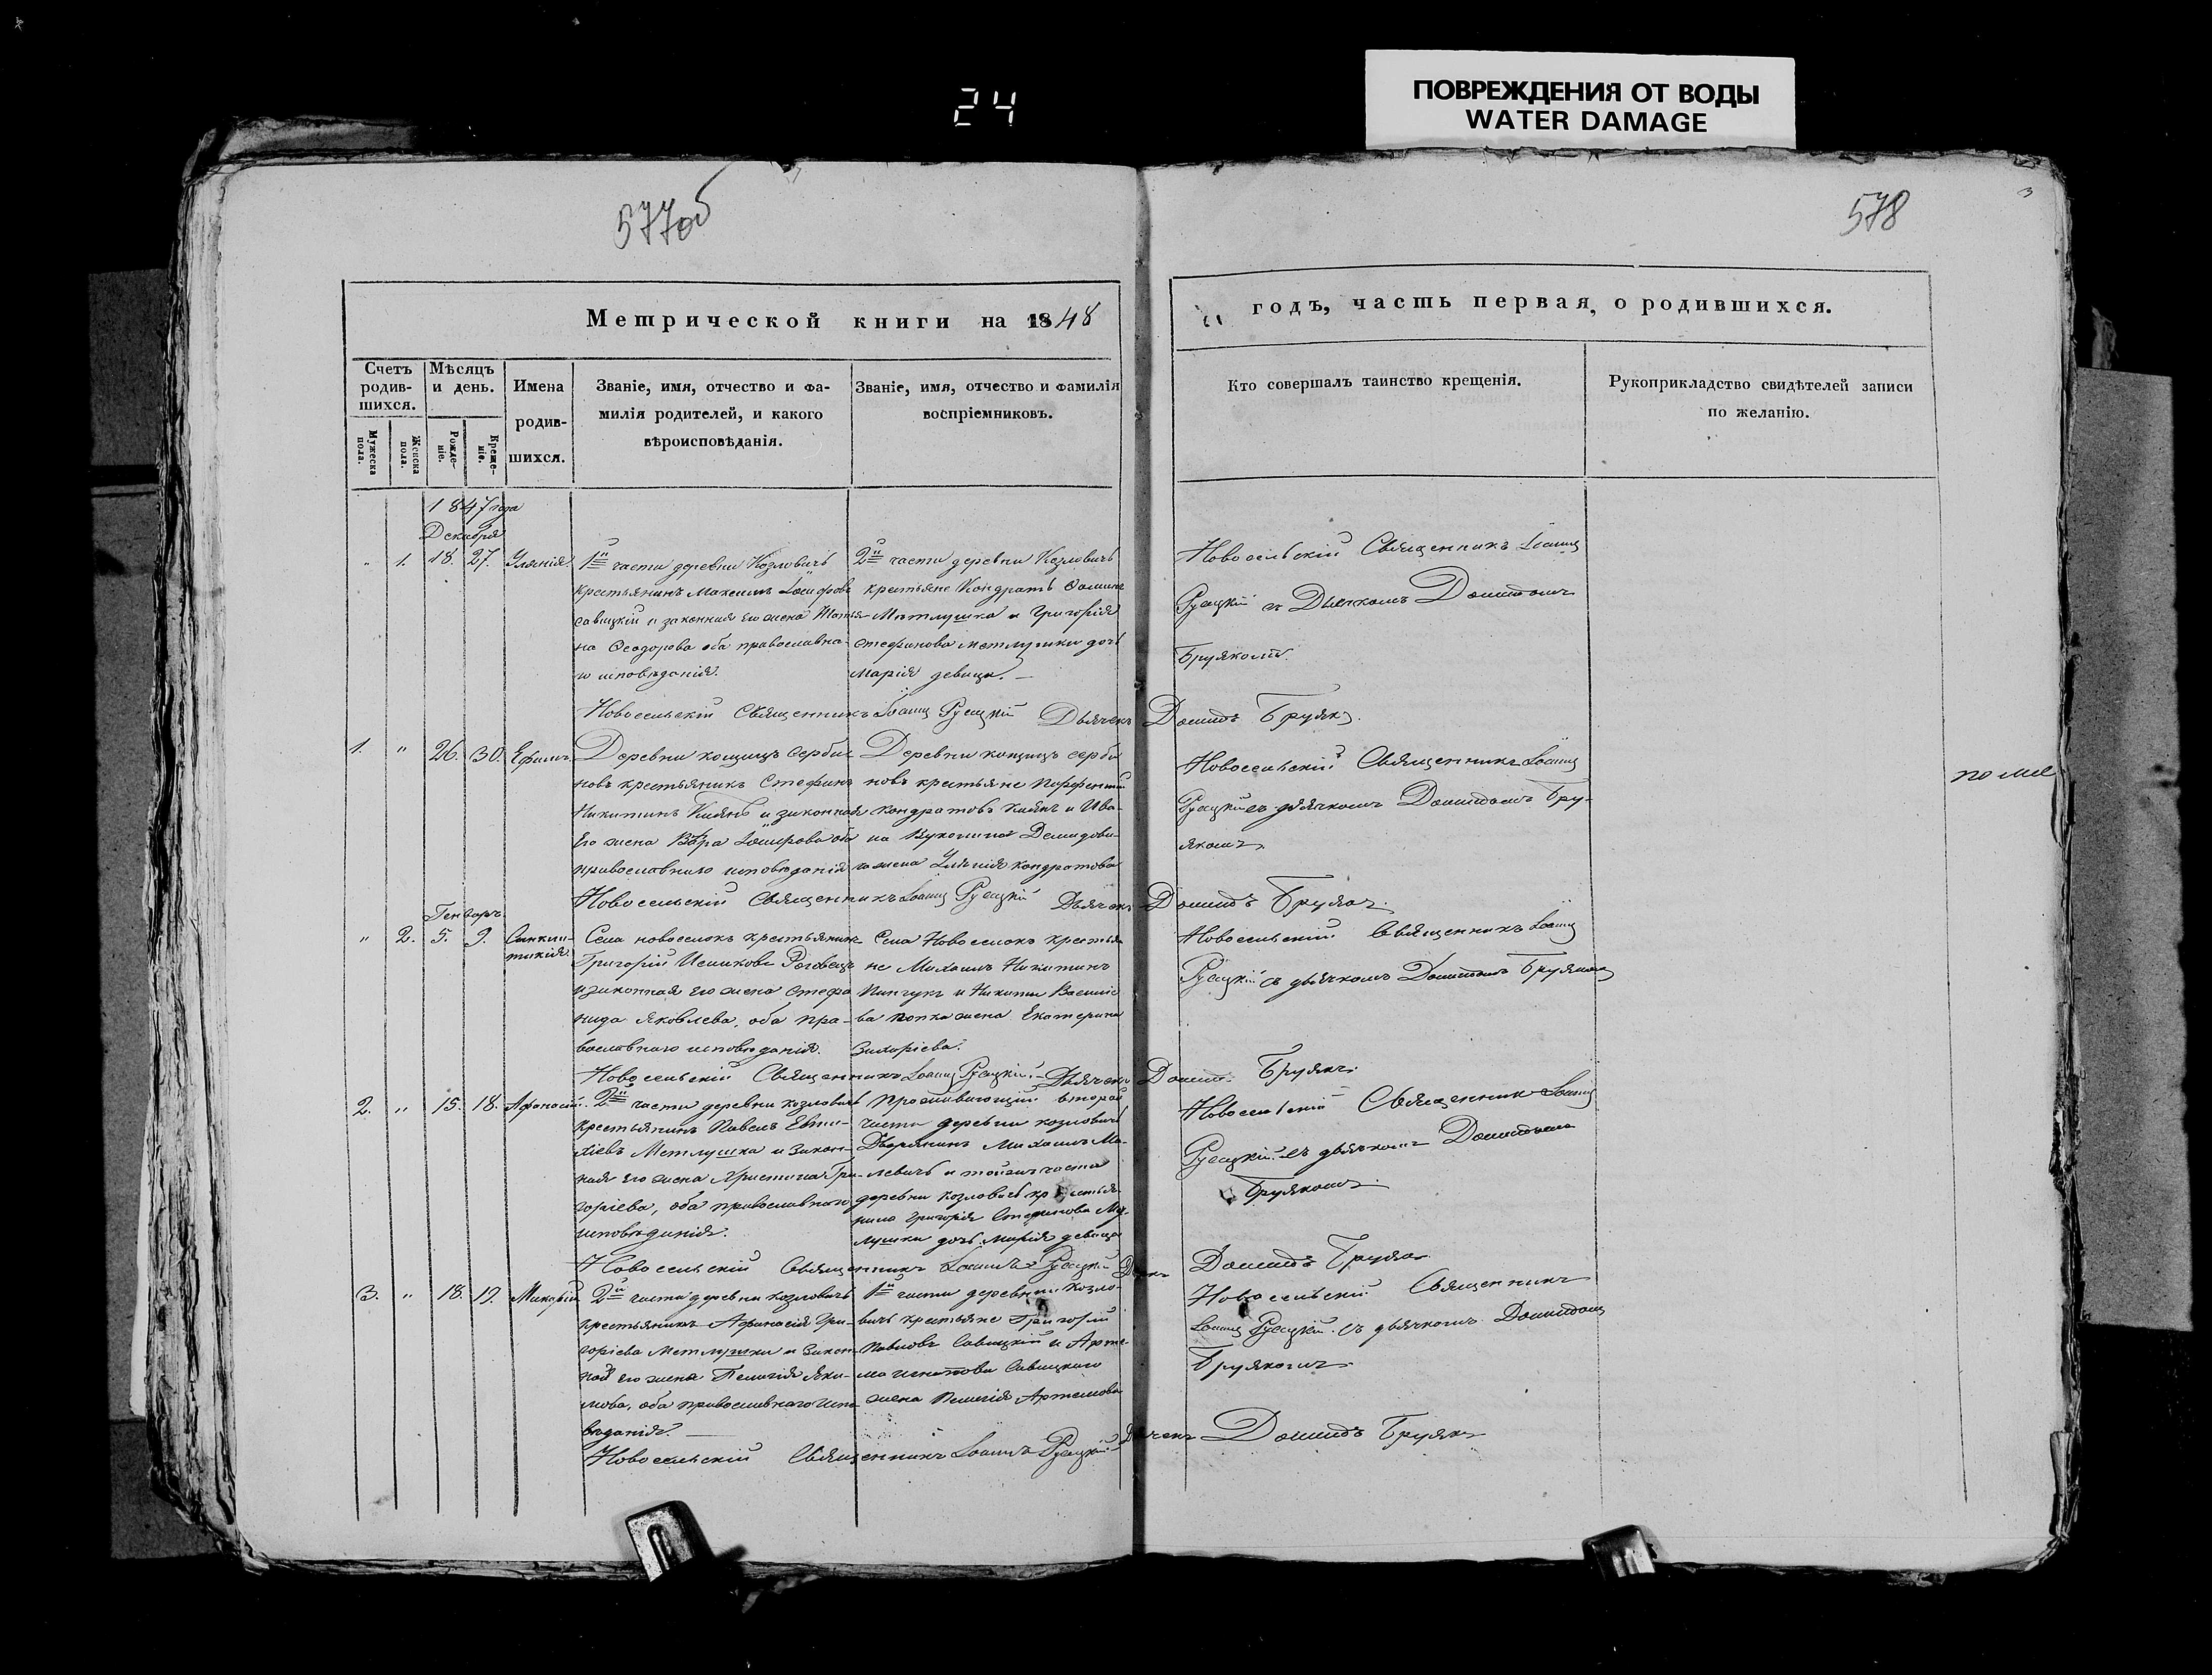 24
ПОВРЕЖДЕНИЯ ОТ ВОДЫ
WATER DAMAGE
577об
578
3
Метрической книги на 1848
годъ, часть первая, о родившихся.
Счетъ родив-шихся.
Мѣсяцъ и день.
Имена родив-шихся.
Званіе, имя, отчество и фа-
милія родителей, и какого
вѣроисповѣданія.
Званіе, имя, отчество и фамилія
воспріемниковъ.
Кто совершалъ таинство крещенія.
Рукоприкладство свидѣтелей записи
по желанію.
Мужеска пола.
Женска пола.
Рожде-ніе.
Креще-ніе.
1847 года
Декабря
" 1. 18. 27. Уліянія
1й части деревни Козловичъ
крестьянинъ Максимъ Іосифовъ
Савицкій и законная его жена Татья-
на Ѳеодорова оба православна-
го исповѣданія.
2й части деревни Козловичъ
крестьяне Кондратъ
Метлушка и Григорія
Стефанова Метлушки дочь
Марія девица. —
Новосельскій Священникъ Іоаннъ
Русецкій съ Дьячкомъ Діомидомъ
Брулякомъ.
Новосельскій Священникъ Іоаннъ Русецкій Дьячекъ Діомидъ Брулякъ.
1. " 26. 30. Ефимъ
Деревни
новъ крестьянинъ Стефанъ
Никитинъ Киянъ и законная
его жена Вѣра Іосифова оба
православнаго исповѣданія
Деревни
новъ крестьяне
Кондратовъ Киянъ и Ива-
на Демидови-
ча жена Уліянія Кондратова
Новосельскій Священникъ Іоаннъ
Русецкій съ дьячкомъ Діомидомъ Бру-
лякомъ
по мѣ
Новосельскій Священникъ Іоаннъ Русецкій Дьячекъ Діомидъ Брулякъ.
Генваръ
" 2. 5. 9. Синкли-
тикія
Села Новоселокъ крестьянинъ
Григорій
и законная его жена Стефа-
нида Яковлева, оба пра-
вославнаго исповѣданія.
Села Новоселокъ крестья-
не Михаилъ Никитинъ
Пинчукъ и Никиты Василіе-
ва жена Екатерина
Захаріева.
Новосельскій Священникъ Іоаннъ
Русецкій съ дьячкомъ Діомидомъ Брулякомъ
Новосельскій Священникъ Іоаннъ Русецкій. Дьячекъ Діомидъ Брулякъ.
2. " 15. 18. Афанасій.
2й части деревни Козловичъ
крестьянинъ Павелъ Евти-
хіевъ Метлушка и закон-
ная его жена Христина Гри-
горіева, оба православнаго
исповѣданія.
Проживающій второй
части деревни Козловичъ
Дворянинъ Михаилъ Ма-
левичъ и тойже части
деревни Козловичъ крестья-
нина Григорія Стефанова Мет-
лушки дочь Марія девица
Новосельскій Священникъ Іоаннъ
Русецкій съ дьячкомъ Діомидомъ
Брулякомъ.
Новосельскій Священникъ Іоаннъ Русецкій Дьячекъ Діомидъ Брулякъ
3. " 18. 19. Макарій
2й части деревни Козловичъ
крестьянинъ Афанасія Гри-
горіева Метлушки и закон-
ной его жена Пелагія Яки-
мова, оба православнаго испо-
вѣданія. —
1й части деревни Козло-
вичъ крестьяне Григорій
Павловъ Савицкій и Арте-
ма Игнатова Савицкаго
жена Пелагія Артемова
Новосельскій Священникъ
Іоаннъ Русецкій съ дьячкомъ Діомидомъ
Брулякомъ
Новосельскій Священникъ Іоаннъ Русецкій Дьячекъ Діомидъ Брулякъ